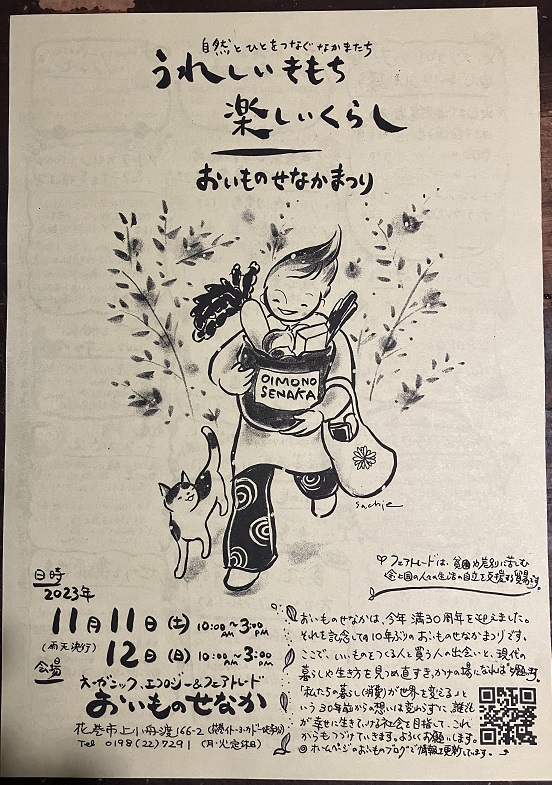 自然とひとをつなぐなかまたち
うれしいきもち
楽しいくらし
おいものせなかまつり
OIMONO
SENAKA
sachie
フェアトレードは、貧困や差別に苦しむ
途上国の人々の生活の自立を支援する貿易です。
日時
2023年
11月11日(土) 10:00AM~3:00PM
(雨天決行) 12日(日) 10:00AM~3:00PM
会場
オーガニック、エコロジー&フェアトレード
おいものせなか
花巻市上小舟渡166-2
Tel 0198(22)7291 (月・火定休日)
おいものせなかは、今年 満30周年を迎えました。
それを記念しての10年ぶりのおいものせなかまつりです。
ここで、いいものをつくる人と買う人の出会いと、現代の
暮らしや生き方を見つめ直すきっかけの場になれば
「私たちの暮らし(消費)が世界を変える」と
いう30年前からの想いは変わらずに 誰もが
幸せに生きていける社会を目指して、これ
からもつづけていきます。よろしくお願いします。
◎ ホームページのおいものブログで情報を更新しています。